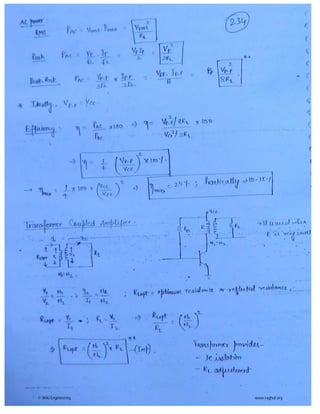 AC power
234
RMS PAC = Vrms . Irms = Vrms² / RL
Peak PAC = VP/√2 . IP/√2 = VP IP/2 = VP²/2RL
Peak-Peak PAC = VP-P/2√2 × IP-P/2√2 = VP-P IP-P/8 = VP-P²/8RL
* Ideally, VP-P = VCC.
Efficiency: η = PAC/PDC × 100 ⇒ η = VP-P²/8RL × 100
⇒ η = 1/4 (VP-P/VCC)² × 100%
⇒ ηmax = 1/4 × 100 × (VCC/VCC)² ⇒ ηmax = 25%; Practically → 10-15%
Transformer Coupled Amplifier.
VCC
N1:N2
RL
RLopt
N1:N2
V1/V2 = N1/N2 ; I2/I1 = N1/N2 ; RLopt = optimum resistance or reflected resistance.
RLopt = V1/I1 ; RL = V2/I2 ⇒ RLopt/RL = (N1/N2)²
⇒ RLopt = (N1/N2)² × RL (Imp)
Transformer provides-
- DC isolation
- RL adjustment
© Wiki Engineering
www.raghul.org